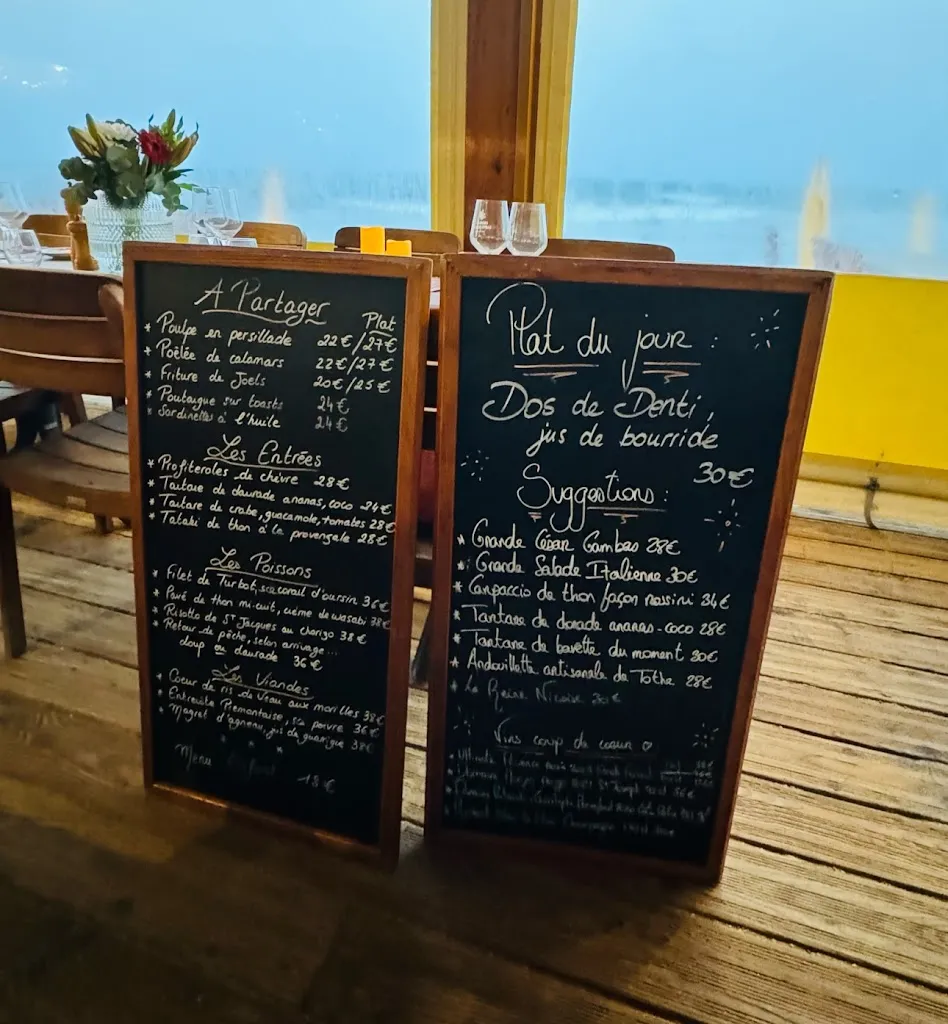 A Partager
Plat
* Poulpe en persillade 22€/27€
* Poêlée de calamars 22€/27€
* Friture de Joels 20€/25€
* Poutargue sur toasts 24€
* Sardinelles à l'huile 24€
Les Entrées
* Profiteroles de chèvre 28€
* Tartare de daurade ananas, coco 24€
* Tartare de crabe, guacamole, tomates 28€
* Tataki de thon à la provençale 28€
Les Poissons
* Filet de Turbot, sce corail d'oursin 36€
* Pavé de thon mi-cuit, crème de wasabi 38€
* Risotto de St Jacques au chorizo 38€
* Retour de pêche, selon arrivage...
loup ou daurade 36€
Les Viandes
* Coeur de ris de Veau aux morilles 38€
* Entrecôte Piemontaise, sce poivre 36€
* Magret d'agneau, jus de garrigue 38€
Menu
18€
Plat du jour :
Dos de Denti,
jus de bourride
30€
Suggestions :
* Grande César Gambas 28€
* Grande Salade Italienne 30€
* Carpaccio de thon façon rossini 34€
* Tartare de dorade ananas-coco 28€
* Tartare de bavette du moment 30€
* Andouillette artisanale de Tothe 28€
* La Reine Nicoise 30€
Vins coup de coeur